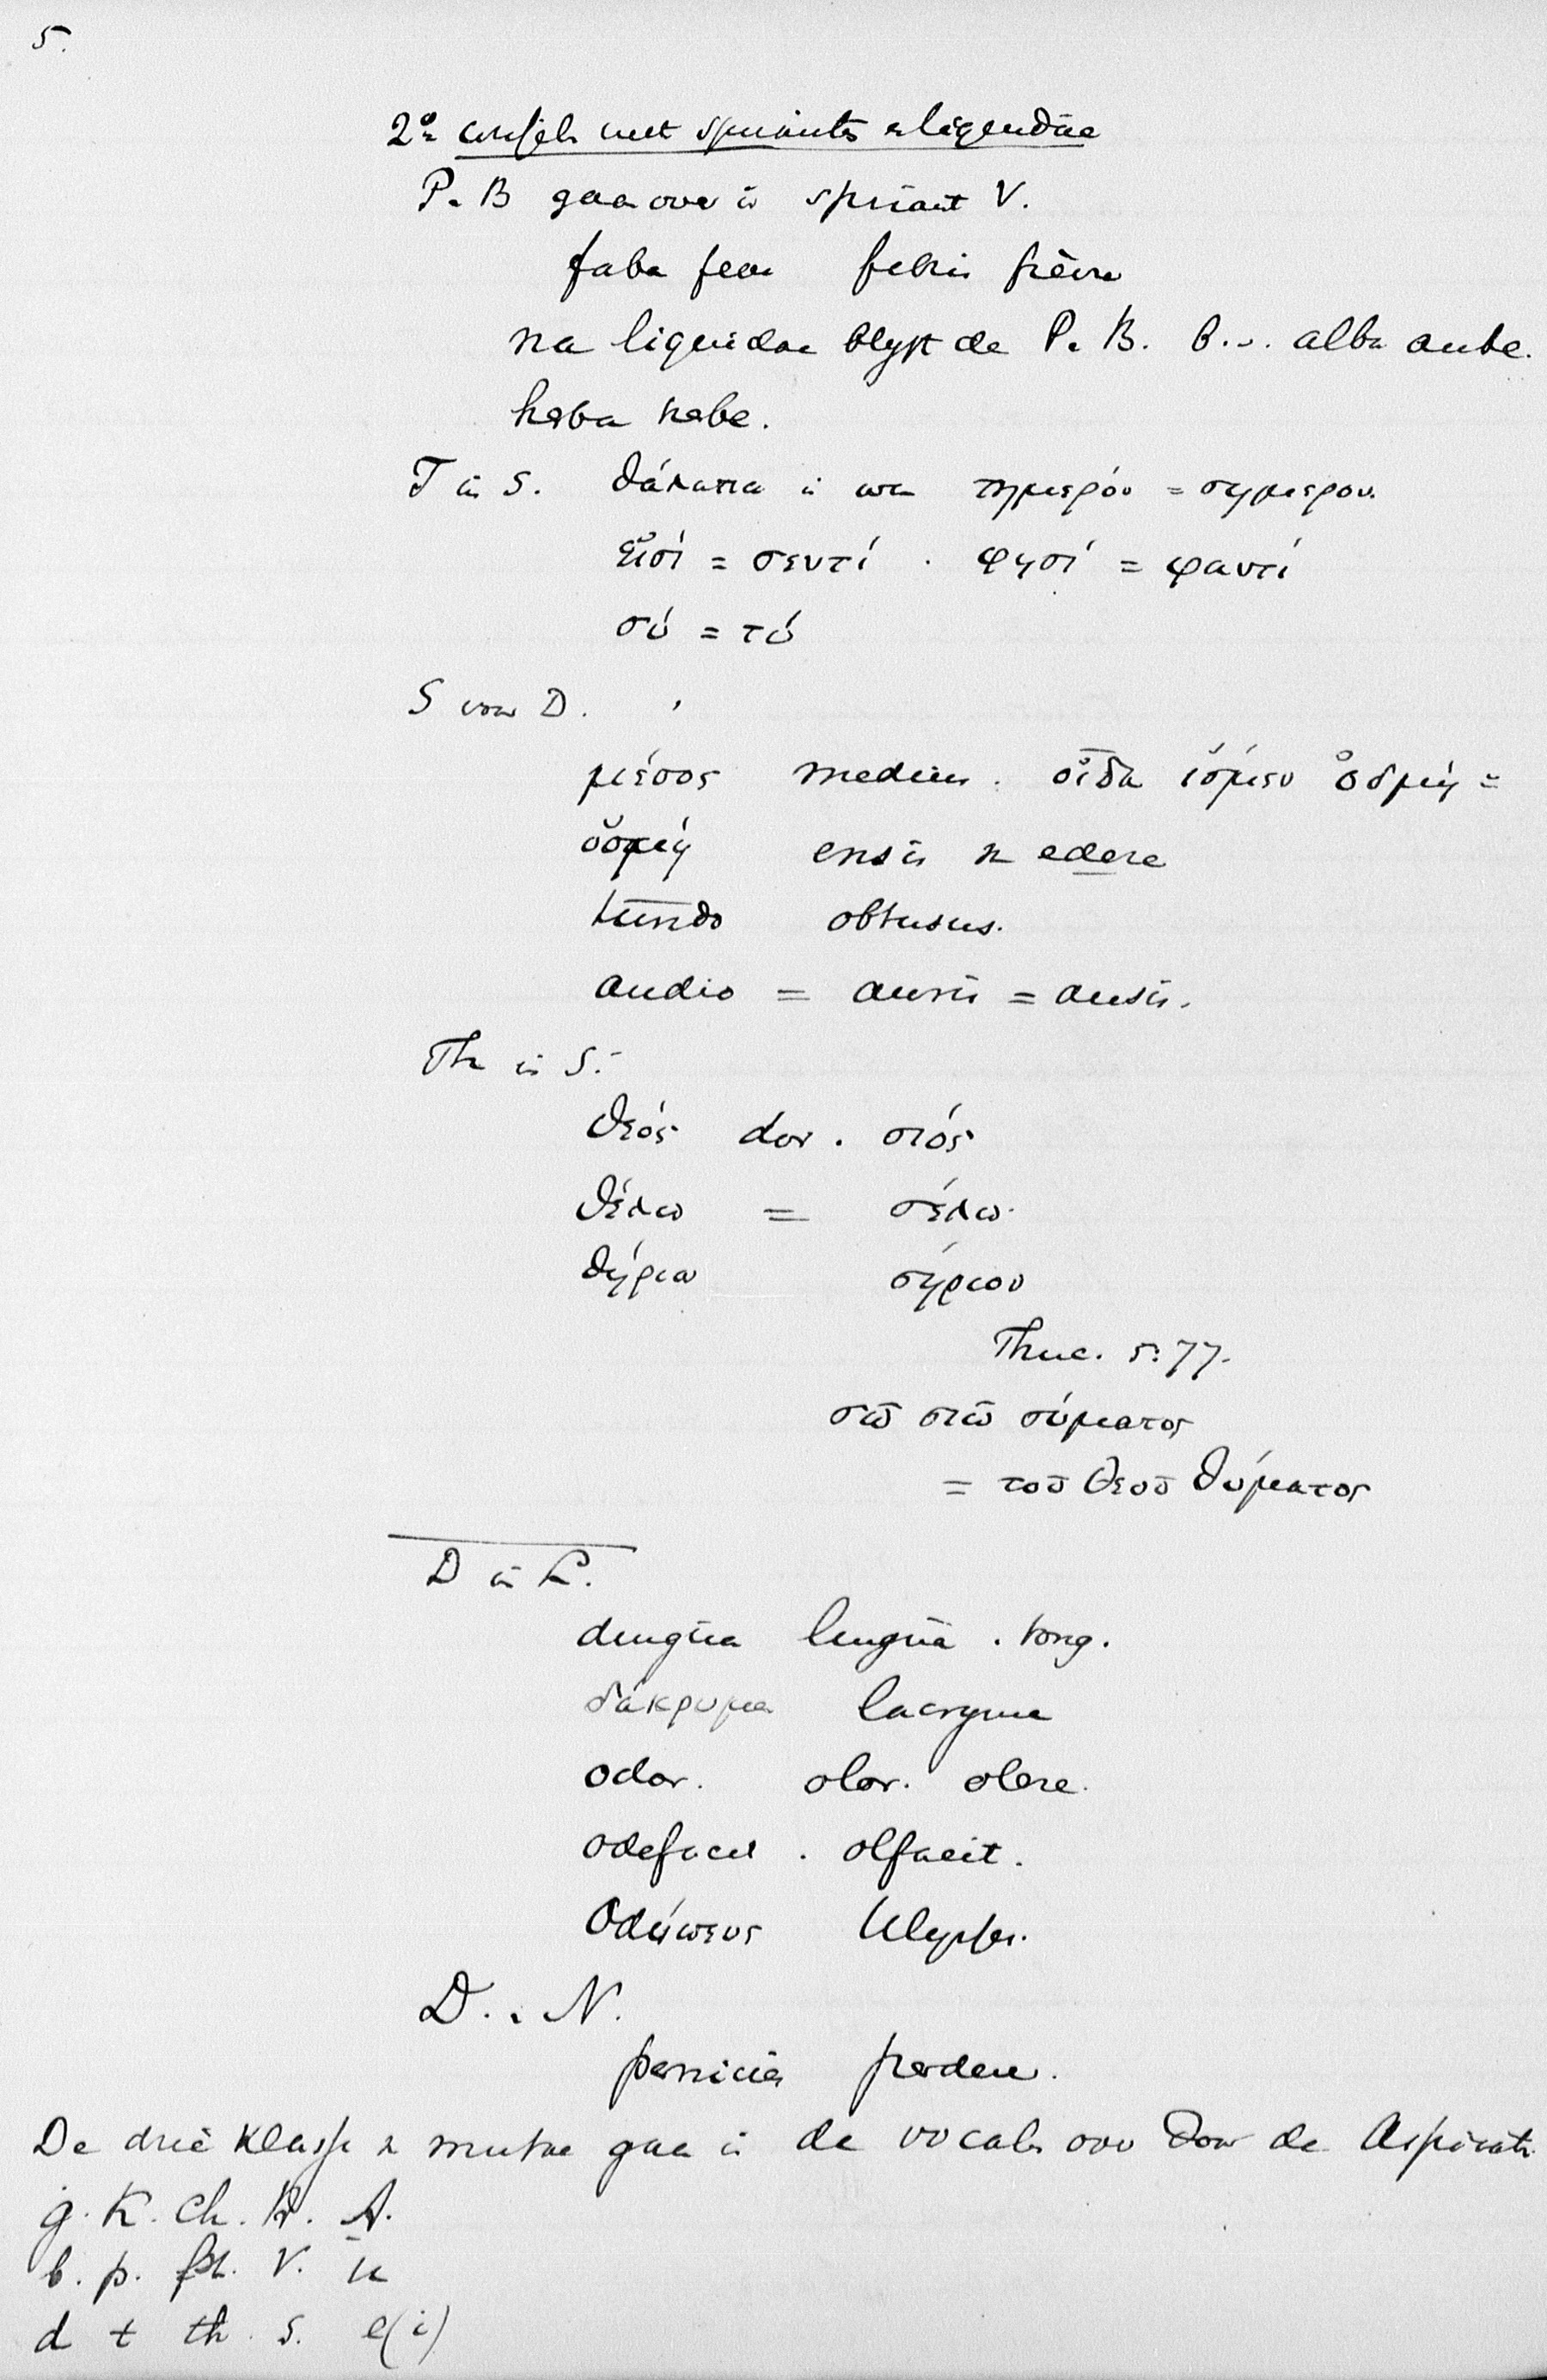 5.
2° wissels met spirantes & liquidae
P. B gaan over in spirant V.
faba feve febris fièvre
na liquidae blyft de P. B. b.v. alba aube.
herba herbe.
T in S. θάλαττα in σσα τημερόν = σημερον.
εἰσί = σεντί . φησί = φαντί
σύ = τύ
S voor D.
μέσος medius. οἶδα ἴσμεν ὀδμή =
ὀσμή ensis n edere
tundo obtusus.
audio = auris = ausis.
Th in S.
θεός dor. σιός
θέλω = σέλω.
θήριον σήριον
Thuc. 5:77.
σιῶ σύματος
= τοῦ θεοῦ θύματος
D in L.
dingua lingua. tong.
δάκρυμα lacryma
odor. olor. olere.
odefacit. olfacit.
Οδύσσευς Ulysses.
D. . N.
pernicies perdere.
De drie klassen mutae gaan in de vocalen over door de Aspiraten
g. K. Ch. H. A.
b. p. ph. V. u
d t th. s. e(i)